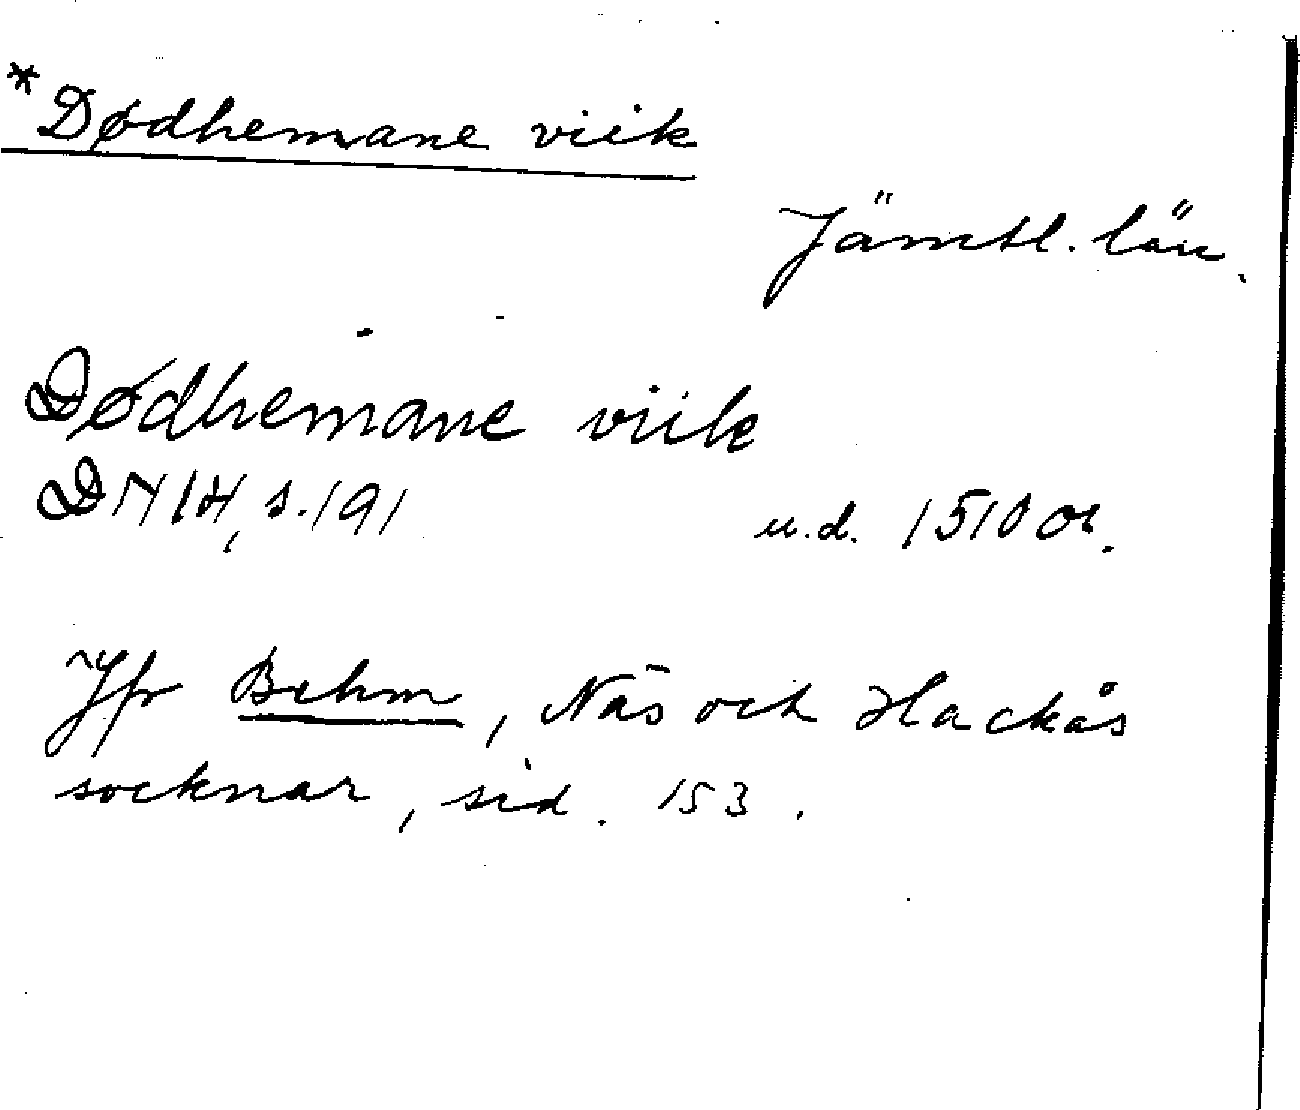 *Dødhemane viik
Jämtl. län.
Dødhemane viik
DN 14, s. 191 u.d. 1510 or.
Jfr Behm, Näs och Hackås
socknar, sid. 153.